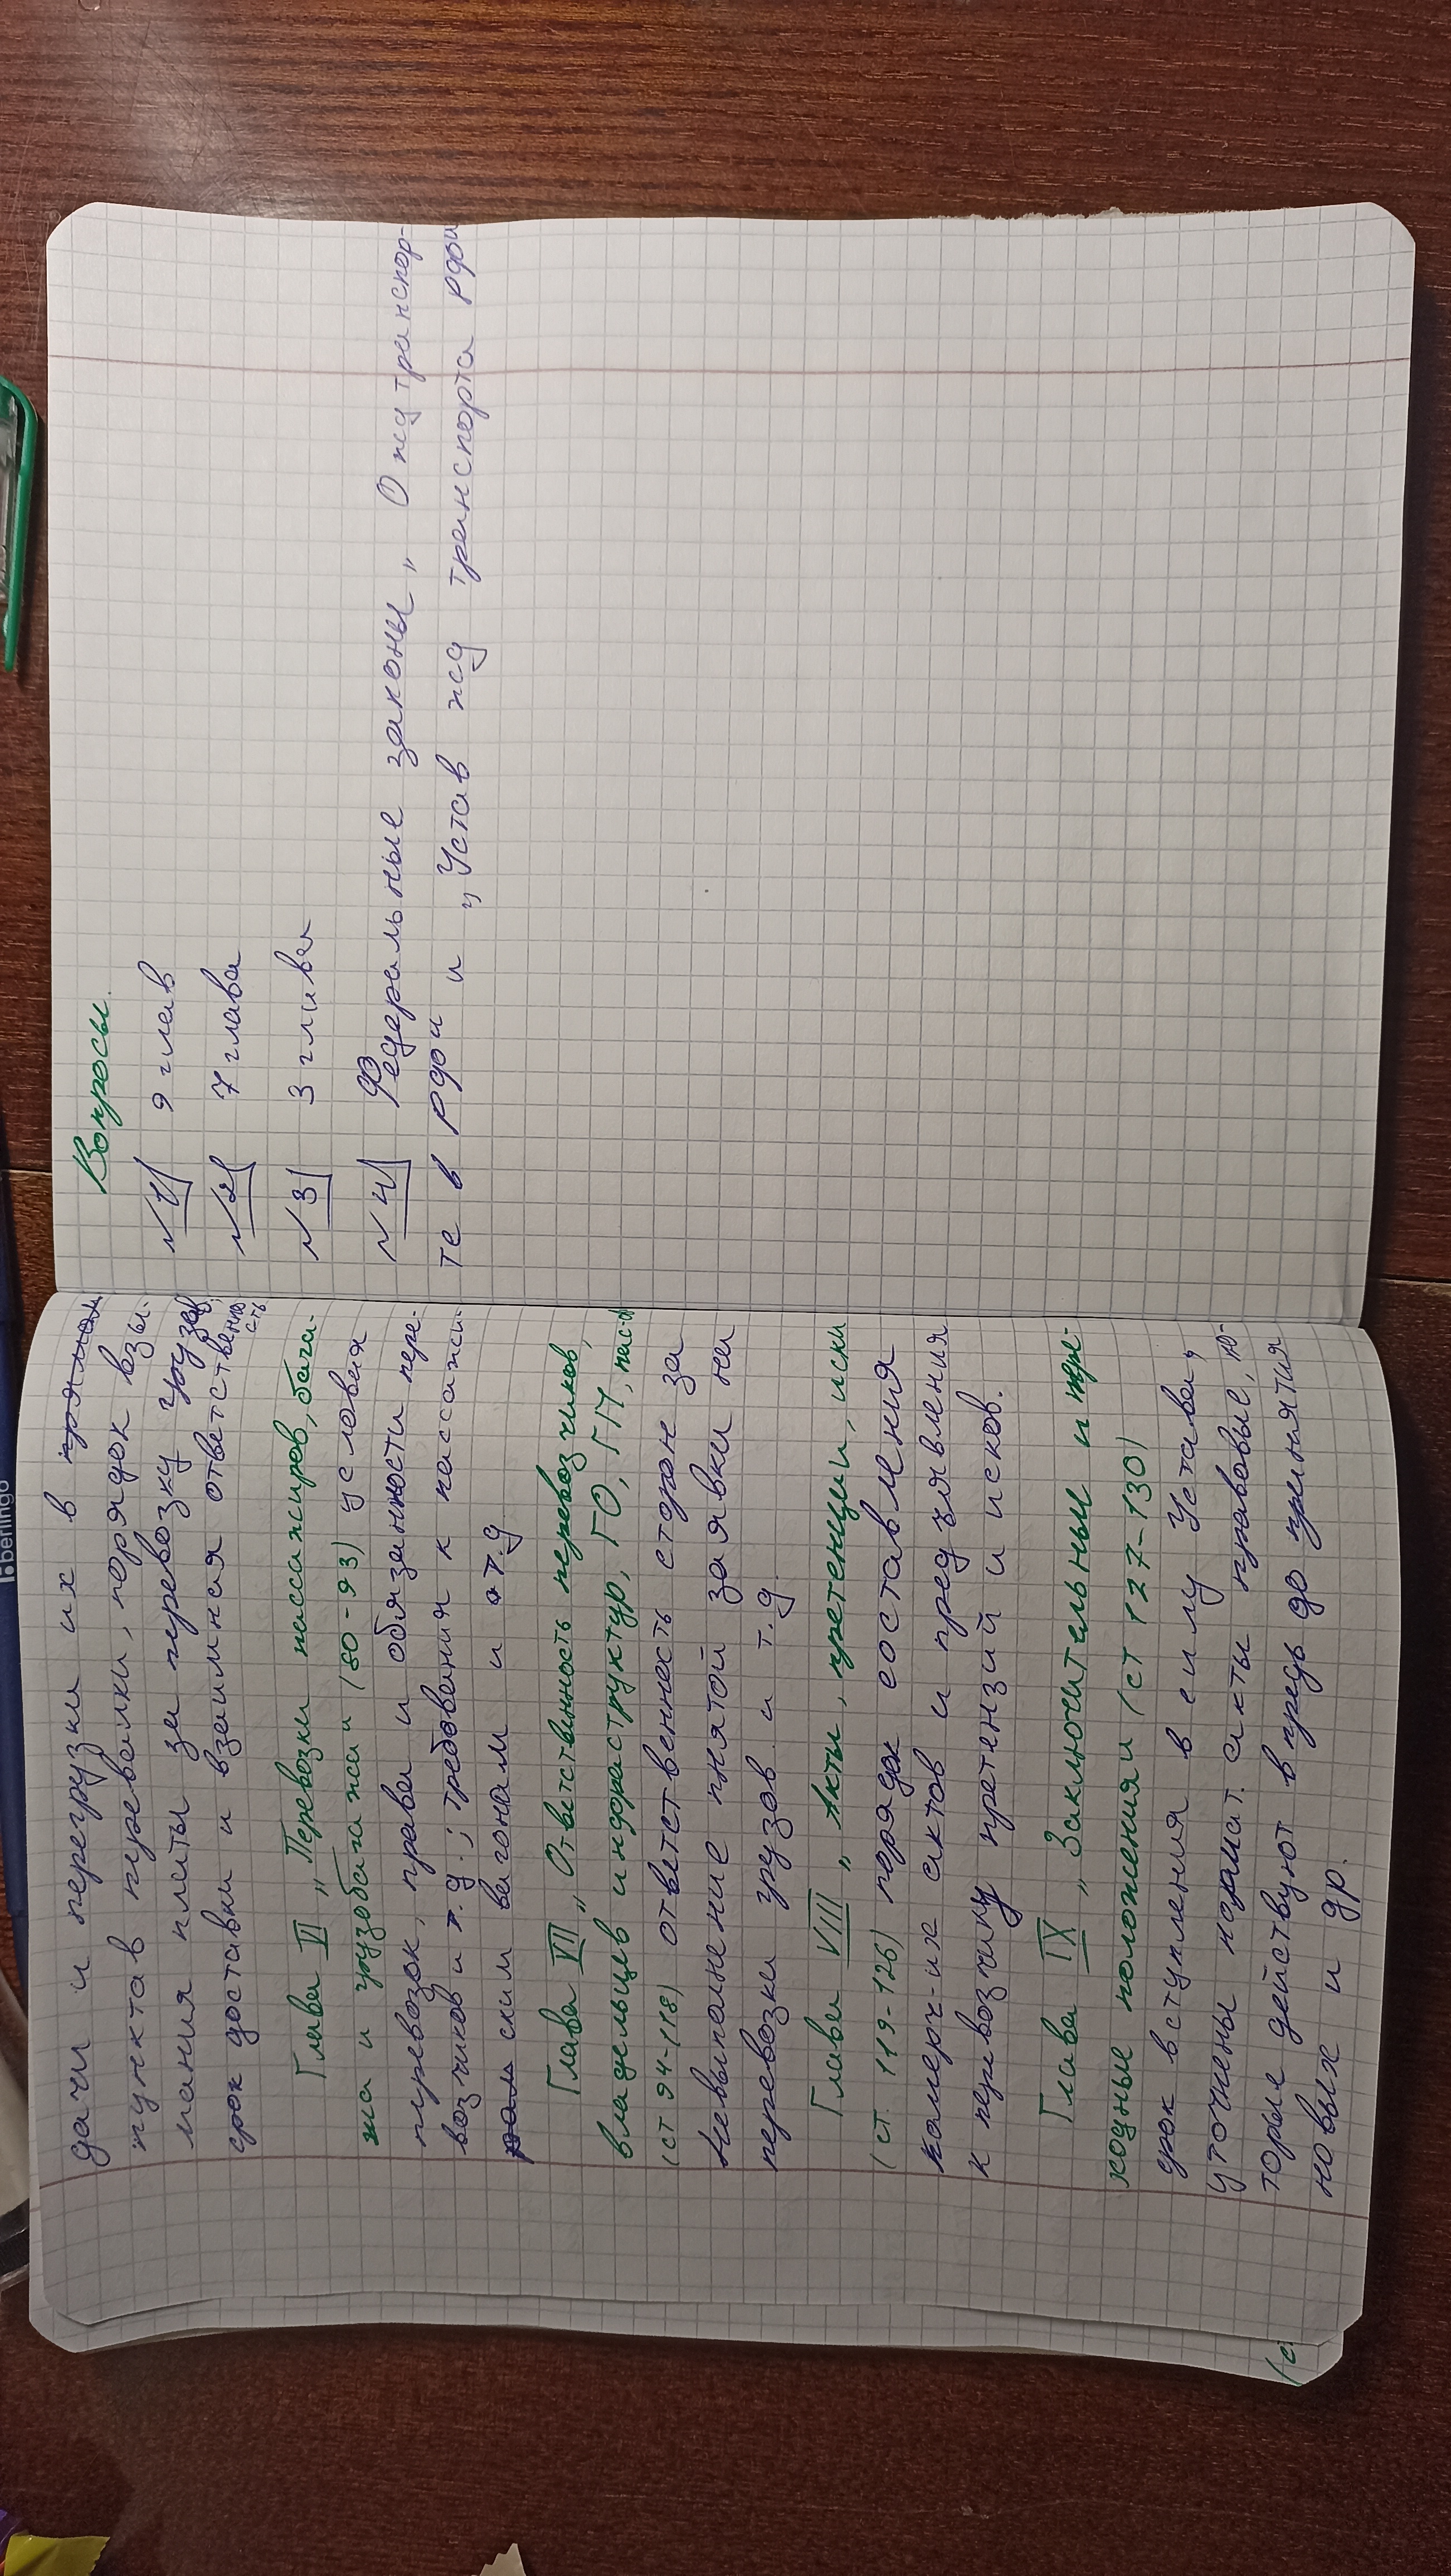 дачи и перегрузки их в прямом
пунктав перевалки, порядок взы-
мания платы за перевозку грузов,
срок доставки и взаимная ответственно
сть
Глава VI „Перевозки пассажиров, бага-
жа и грузобагажа" (80-93) условия
перевозок, права и обязанности пере-
возчиков и т.д.; требования к пассажи-
ским вагонам и т.д
Глава VII „Ответственность перевозчиков,
владельцев инфраструктур, ГО, ГП, пас-ов
(ст 94-118) ответственность сторон за
Невыполнение пнятой заявки на
перевозки грузов и т.д.
Глава VIII „Акты, претенции, иски
(ст. 119-126) порядок составления
комерч-их актов и предъявления
к перевозчику претензий и исков.
Глава IX „Заключительные и пре-
ходные положения" (ст 127-130)
срок вступления в силу Устава,
уточнены нормат. акты правовые, ко-
торые действуют впредь до принятия
новых и др.
Вопросы.
№1 9 глав
№2 7 глава
№3 3 глава
№4 Федеральные законы „О жд транспор-
те в РФ" и „Устав жд транспорта РФ"
berlingo
(с